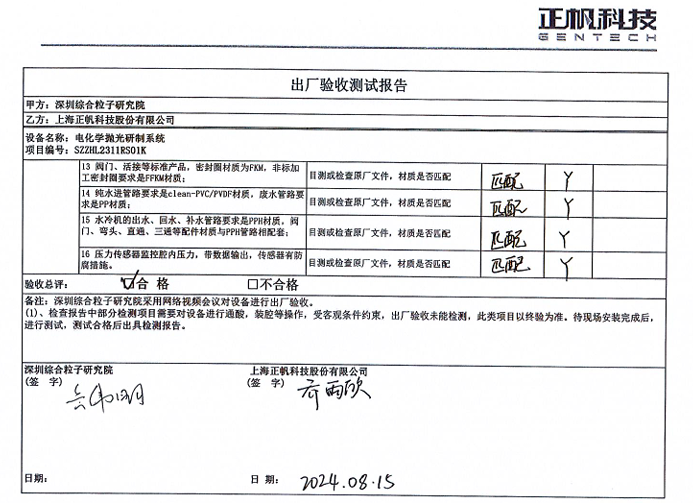 正帆科技
GENTECH
出厂验收测试报告
甲方：深圳综合粒子研究院
乙方：上海正帆科技股份有限公司
设备名称：电化学抛光研制系统
项目编号：SZZHL2311RS01K
13 阀门、活接等标准产品，密封圈材质为FKM，非标加工密封圈要求是FFKM材质；
目测或检查原厂文件，材质是否匹配 匹配 Y
14 纯水进管路要求是clean-PVC/PVDF材质，废水管路要求是PP材质；
目测或检查原厂文件，材质是否匹配 匹配 Y
15 水冷机的出水、回水、补水管路要求是PPH材质，阀门、弯头、直通、三通等配件材质与PPH管路相配套；
目测或检查原厂文件，材质是否匹配 匹配 Y
16 压力传感器监控腔内压力，带数据输出，传感器有防腐措施。
目测或检查原厂文件，材质是否匹配 匹配 Y
验收总评： ☑合 格 □不合格
备注：深圳综合粒子研究院采用网络视频会议对设备进行出厂验收。
(1)、检查报告中部分检测项目需要对设备进行通酸，装腔等操作，受客观条件约束，出厂验收未能检测，此类项目以终验为准。待现场安装完成后，
进行测试，测试合格后出具检测报告。
深圳综合粒子研究院 上海正帆科技股份有限公司
(签 字) (签 字)
日期： 日 期： 2024.08.15